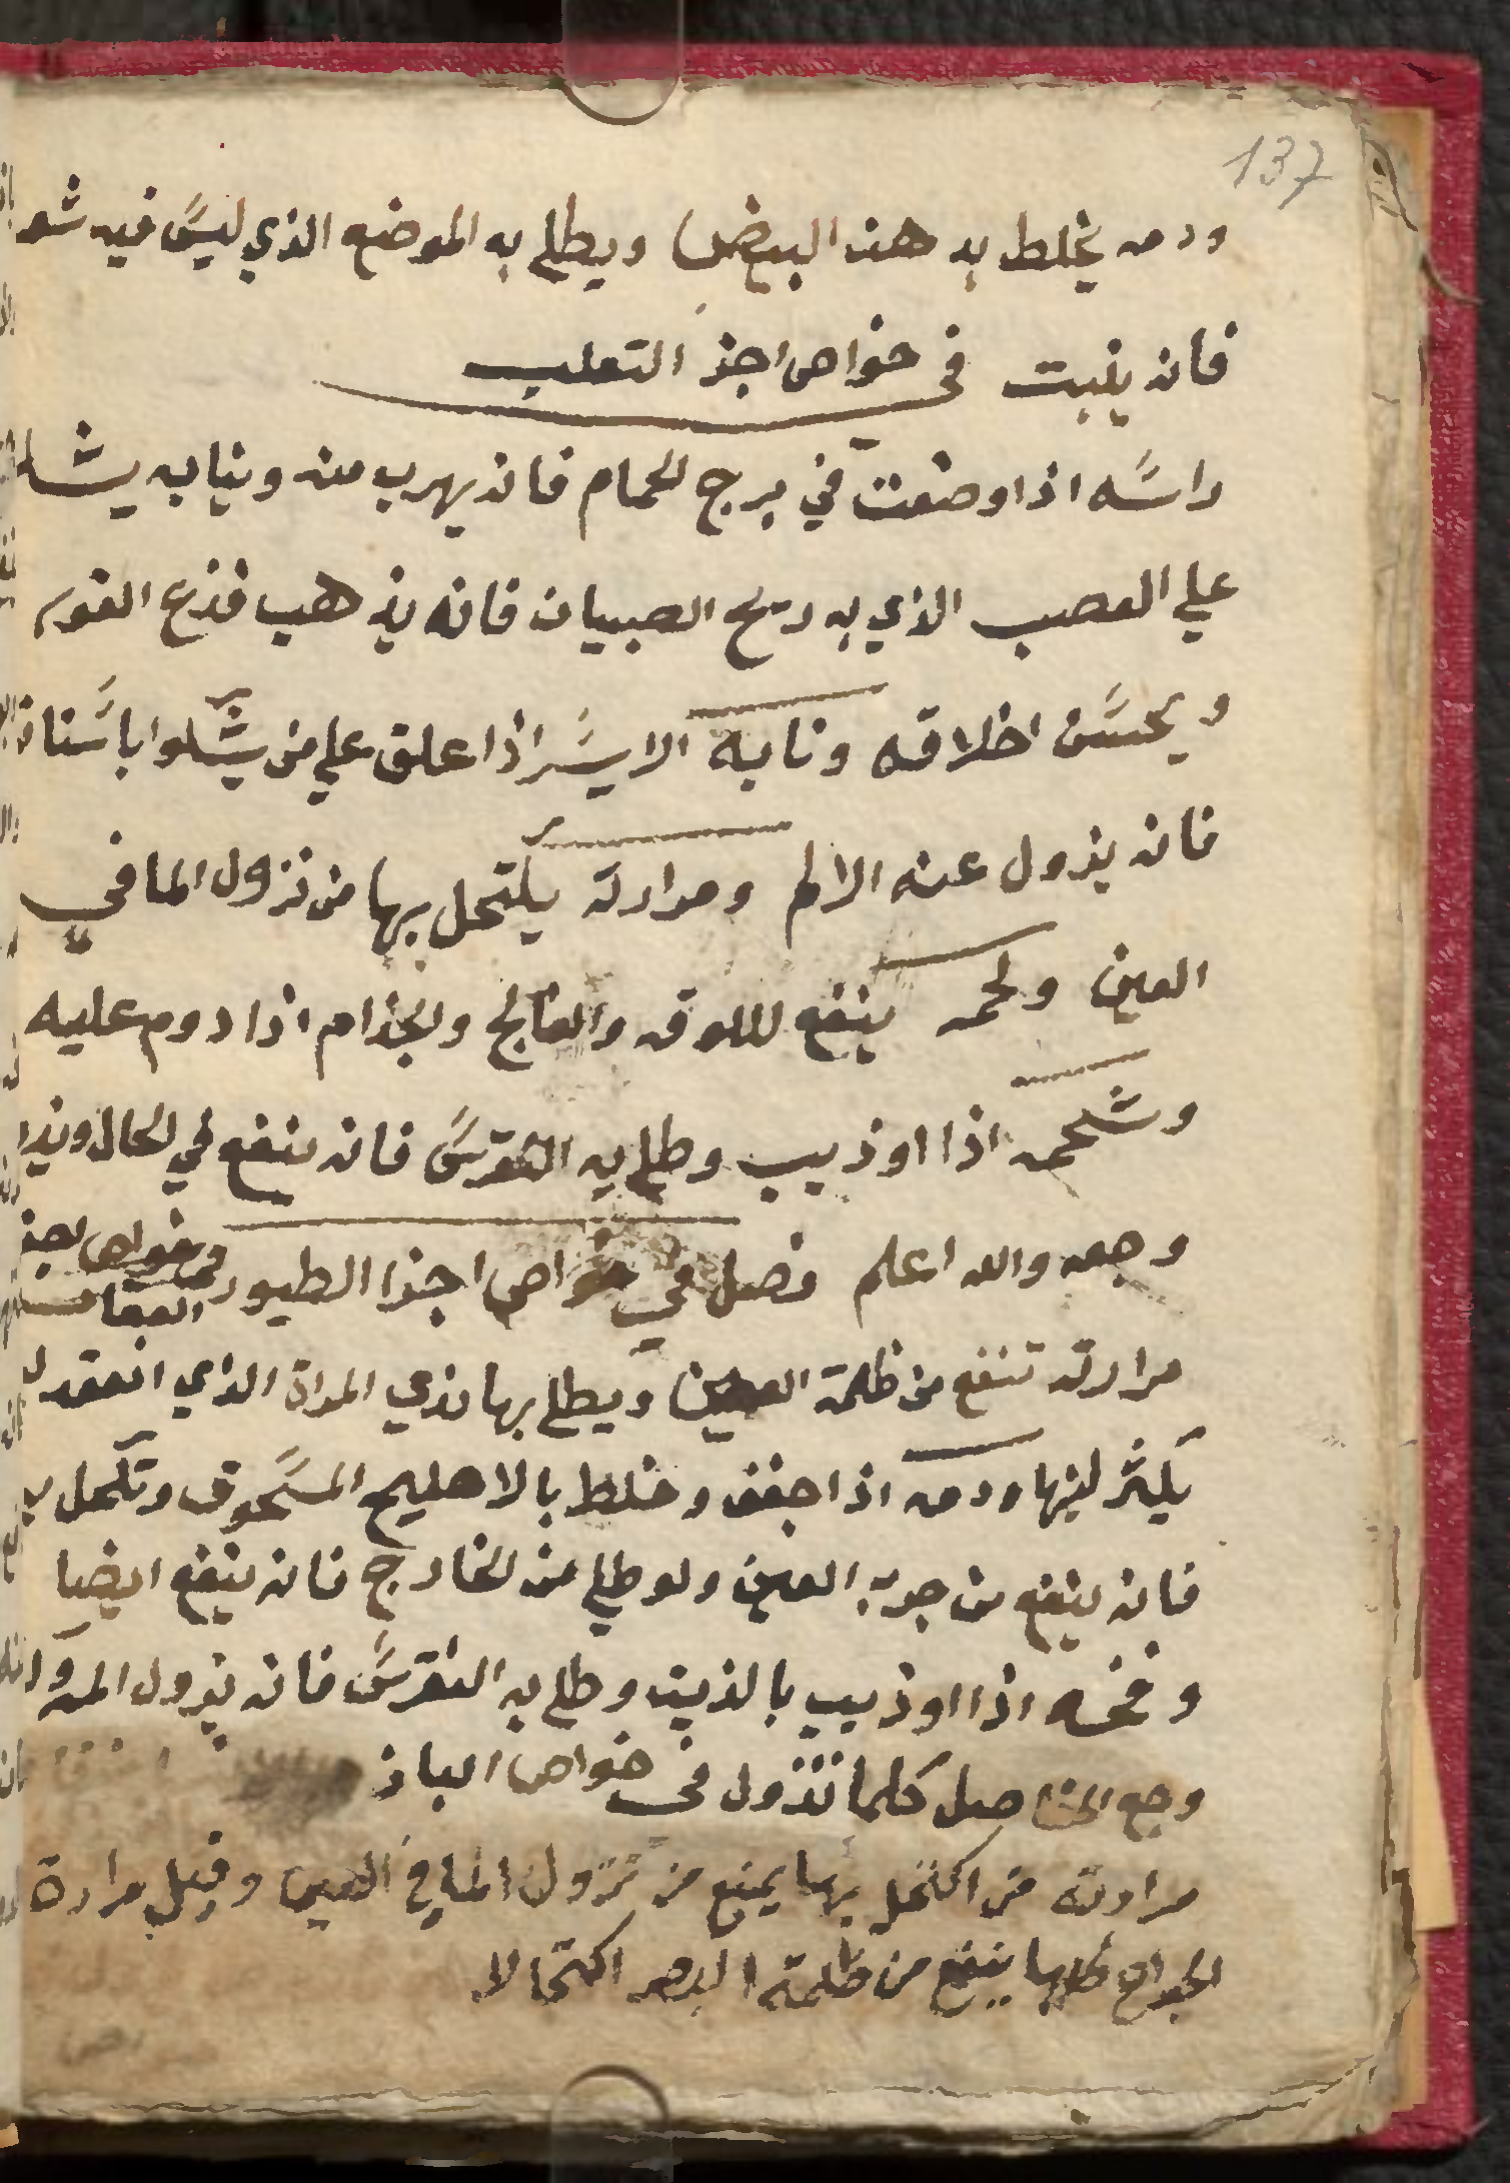 137
ودمه يخلط به هذه البيض ويطلي به الموضع الذي ليس فيه شعر
فانه ينبت في خواص اجز التعلب
راسه اذا وضعت في برج الحمام فانه يهرب منه ونيابه يشد
علي العصب الذي به ريح الصبيان فانه يذهب فزع القوم
ويحسن اخلاقه ونابه الايسر اذا علق علي من يشكوا باسنانه
فانه يزول عنه الالم ومرارته يكتحل بها من نزول الما في
العين ولحمه ينفع للوقه والفالج والجذام اذا دوم عليه
وشحمه اذا اوذيب وطلي به النقرس فانه ينفع في الحال
وجعه والله اعلم فصل في خواص اجزا الطيور في خواص اجز
العقاب
مرارته تنفع من ظلمة العين ويطلي بها بذي المراة الذي انعقد
يكثر لبنها ودمه اذا جفف وخلط بالاهليج المسحوق وتكحل به
فانه ينفع من جرب العين ولو طلي من الخارج فانه ينفع ايضا
ومخه اذا اوذيب بالزيت وطلي به النقرس فانه يزول
وجع المفاصل كلما تنزول في خواص الباز
مرارته من اكتحل بها يمنع من نزول الما في العين وقيل مرارة
الجوارح كلها ينفع من ظلمة البصر اكتحالا